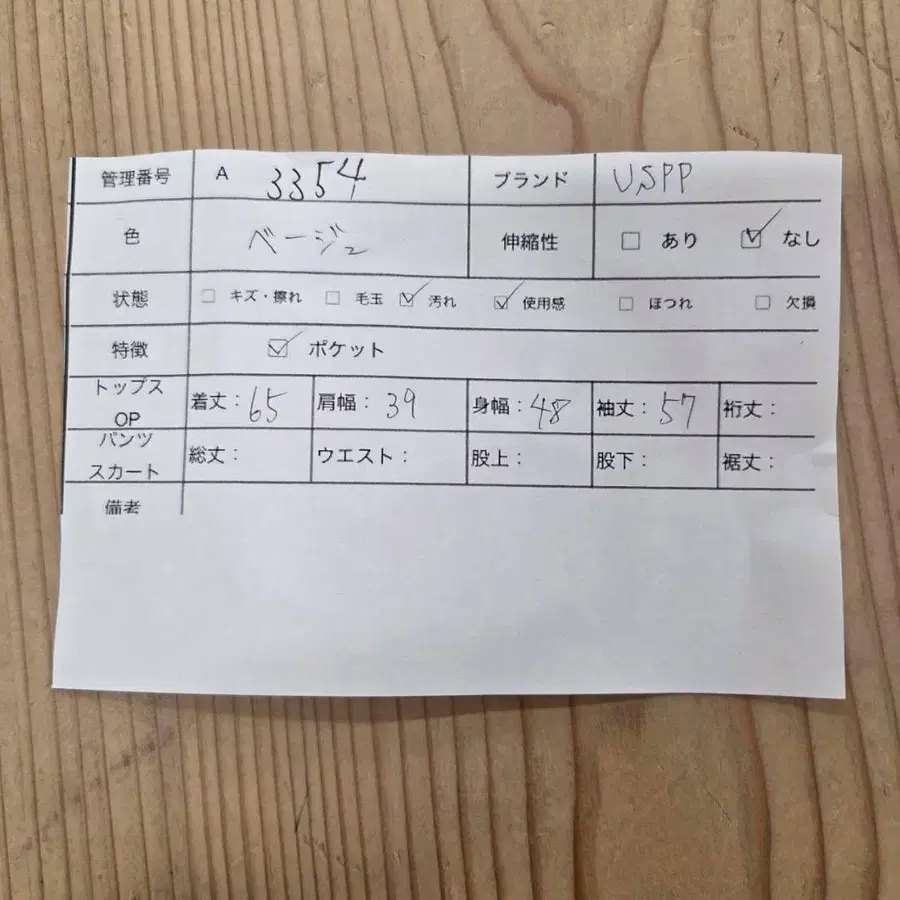 管理番号 A 3354 ブランド USPP
色 ベージュ 伸縮性 □ あり ☑ なし
状態 □ キズ・擦れ □ 毛玉 ☑ 汚れ ☑ 使用感 □ ほつれ □ 欠損
特徴 ☑ ポケット
トップス
OP 着丈：65 肩幅：39 身幅：48 袖丈：57 裄丈：
パンツ
スカート 総丈： ウエスト： 股上： 股下： 裾丈：
備考